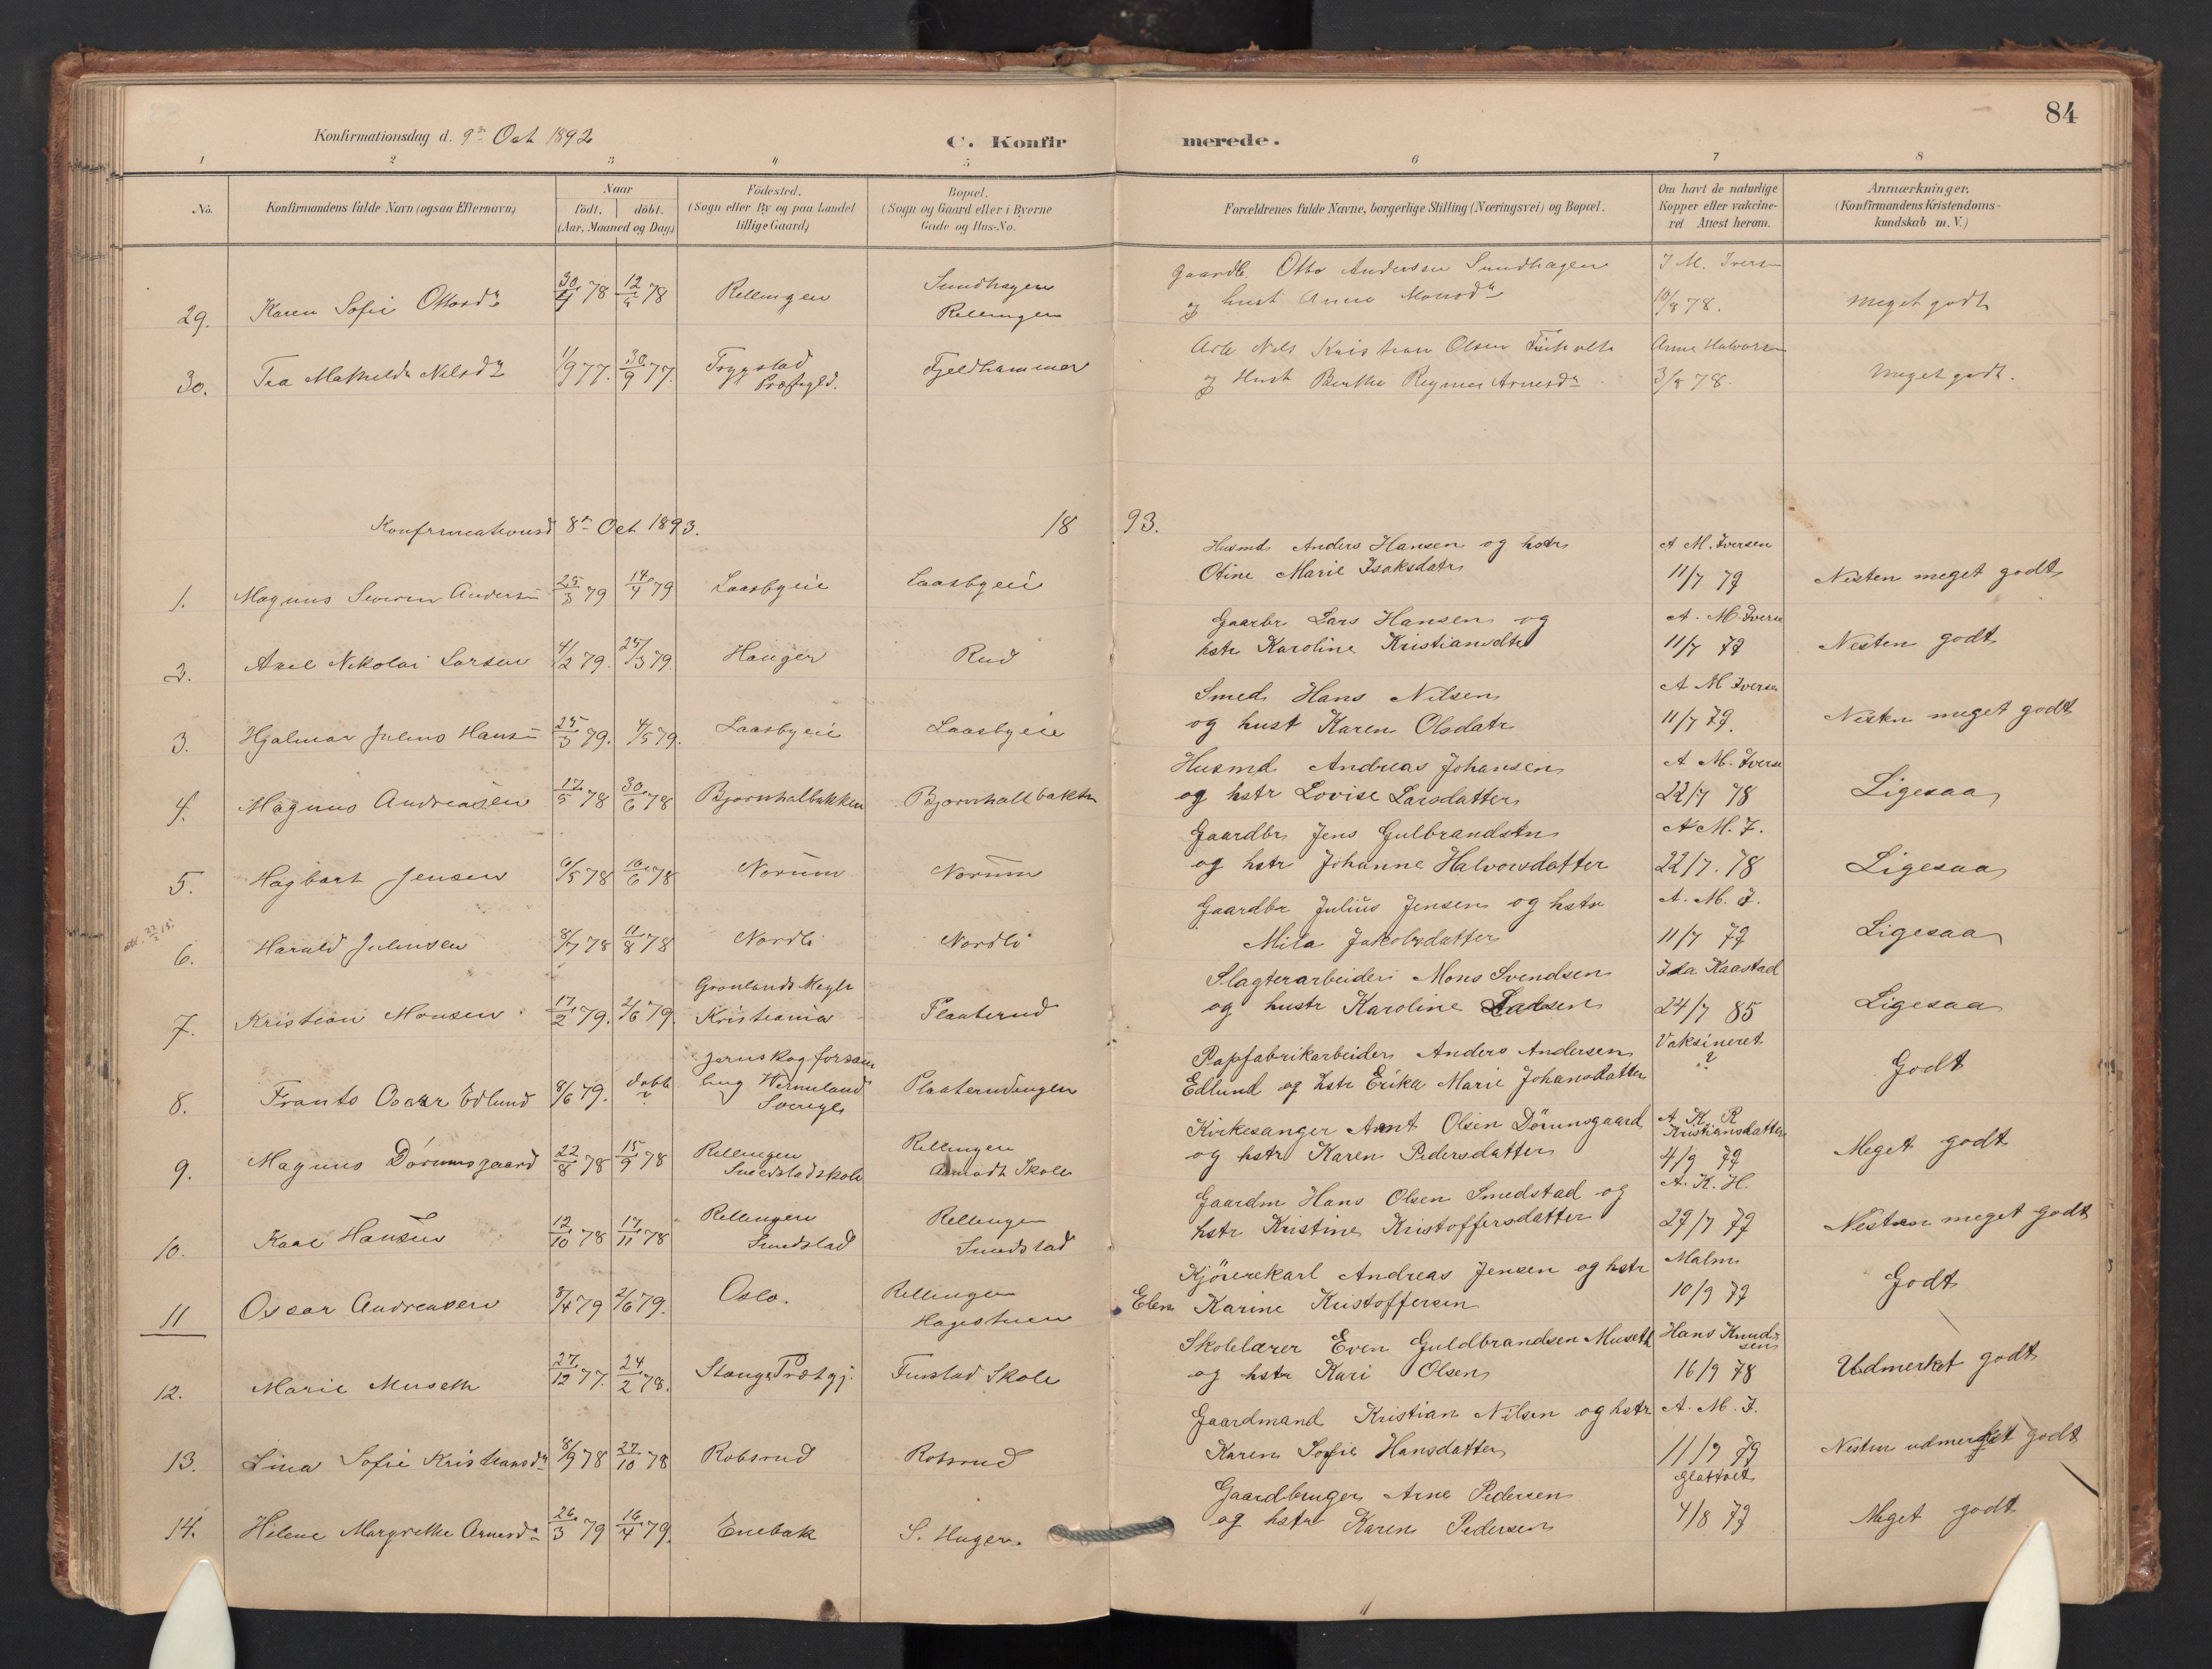 84
Konfirmationsdag d. 9de Oct 1892
C. Konfirmerede.
1 2 3 4 5 6 7 8
No. Konfirmandens fulde Navn (ogsaa Efternavn) Naar født. døbt. (Aar, Maaned og Dag) Födested. (Sogn eller By og paa Landet tillige Gaard) Bopæl. (Sogn og Gaard eller i Byerne Gade og Hus-No. Forældrenes fulde Navne, borgerlige Stilling (Næringsvei) og Bopæl. Om havt de naturlige Kopper eller vakcineret Attest herom. Anmærkninger. (Konfirmandens Kristendomskundskab m. V.)
Gaardb. Otto Andersen Sundhagen J M. Iversen
29. Karen Sofie Ottosdr 30/4 78 12/ 78 Rellingen Sundhagen Rellingen og hust Anne Monsdr 10/8 78. Meget godt
Arb Nels Kristian Olsen Anne Halvorsen
30. Tea Mathilde Nilsdr 1/9 77. 30/9 77. Tryggstad Præstegld. Fjeldhammer og Hust Berthe Regine Arnesdr 3/8 78. Meget godt.
Konfirmationsd 8de Oct 1893.
18 93.
Husmd Anders Hansen og hstr A M. Iversen
1. Magnus Severin Andersen 25/3 79 14/4 79 Laasbyeie Laasbyeie Otine Marie Isaksdatr 11/7 79 Nesten meget godt
Gaarbr Lars Hansen og A. M. Iversen
2. Axel Nikolai Larsen 4/2 79. 25/3 79. Hauger Rud hstr Karoline Kristiansdtr 11/7 79 Nesten godt
Smed Hans Nilsen A M Iversen
3. Hjalmar Julius Hansen 25/3 79. 4/5 79. Laasbyeie Laasbyeie og hust Karen Olsdatr 11/7 79. Nesten meget godt
Husmd Andreas Johansen A M. Iversen
4. Magnus Andreasen 17/5 78 30/6 78 Bjornhalbakken Bjornhallbakken og hstr Lovise Larsdatter 22/7 78 Ligesaa
Gaardbr Jens Gulbrandsen A M. I.
5. Hagbart Jensen 6/5 78 10/6 78 Norum Norum og hstr Johanne Halvorsdatter 22/7. 78 Ligesaa
Gaardbr Julius Jensen og hstr A. M. I.
6. Harald Juliusen 8/7 78 11/8 78 Nordli Nordli Mila Jakobsdatter 11/7 79 Ligesaa
Slagterarbeider Mons Svendsen Ida Kaastad
7. Kristian Monsen 17/2 79. 2/6 79. Gronlands Megh Kristiania Plaaterud og hustr Karoline Larsen 24/7 85 Ligesaa
Papfabrikarbeider Anders Andersen Vaksineret
8. Frants Oscar Edlund 8/6 79. døbt ? Jernskog forsamling Wermeland Sverige Plaaterudengen Edlund og hstr Erika Marie Johansdatter ? Godt
Kirkesanger Arnt Olsen Dörumsgaard A. K. R Kristiansdatter
9. Magnus Dörumsgaard 22/8 78 15/9 78 Rellingen Smedstadskole Rellingen Aamodt Skole og hstr Karen Pedersdatter 4/9 79 Meget godt
Gaardm Hans Olsen Smedstad og A. K. H.
10. Kaal Hansen 12/10 78 17/11 78 Rellingen Smedstad Rellingen Smedstad hstr Kristine Kristoffersdatter 29/7 79 Nesten meget godt
Kjörerekarl Andreas Jensen og hstr Malm
11 Oscar Andreasen 8/4 79 2/6 79. Oslo. Rellingen Hagestuen Elen Karine Kristoffersen 10/9 79 Godt
Skolelærer Even Guldbrandsen Museth Hans Knudsen
12. Marie Museth 27/12 77. 24/2 78. Stange Præstgj. Finstad Skole og hstr Kari Olsen 16/9 78 Udmerket godt
Gaardmand Kristian Nilsen og hstr A. M. I.
13. Lina Sofie Kristiansdr 8/9 78 27/10 78 Robsrud Robsrud Karen Sofie Hansdatter 11/9 79 Nesten udmerket godt
Gaardbruger Arne Pedersen Glattvet
14. Helene Margrethe Arnesdr 26/3 79 16/4 79. Enebak S. Huger. og hstr Karen Pedersen 4/8 79 Meget godt